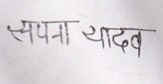 सपना यादव